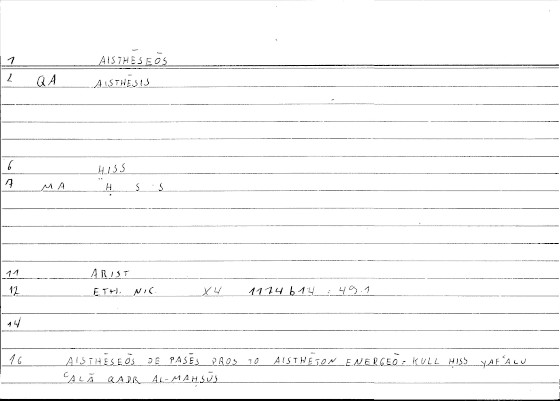 1 AISTHĒSEŌS
2 QA AISTHĒSIS
6 ḤISS
7 MA Ḥ S S
11 ARIST
12 ETH. NIC. X4 1174 b 14 : 49.1
14
16 AISTHĒSEŌS DE PASĒS PROS TO AISTHĒTON ENERGEŌ = KULL ḤISS YAFʿALU
ʿALĀ QADR AL-MAḤSŪS